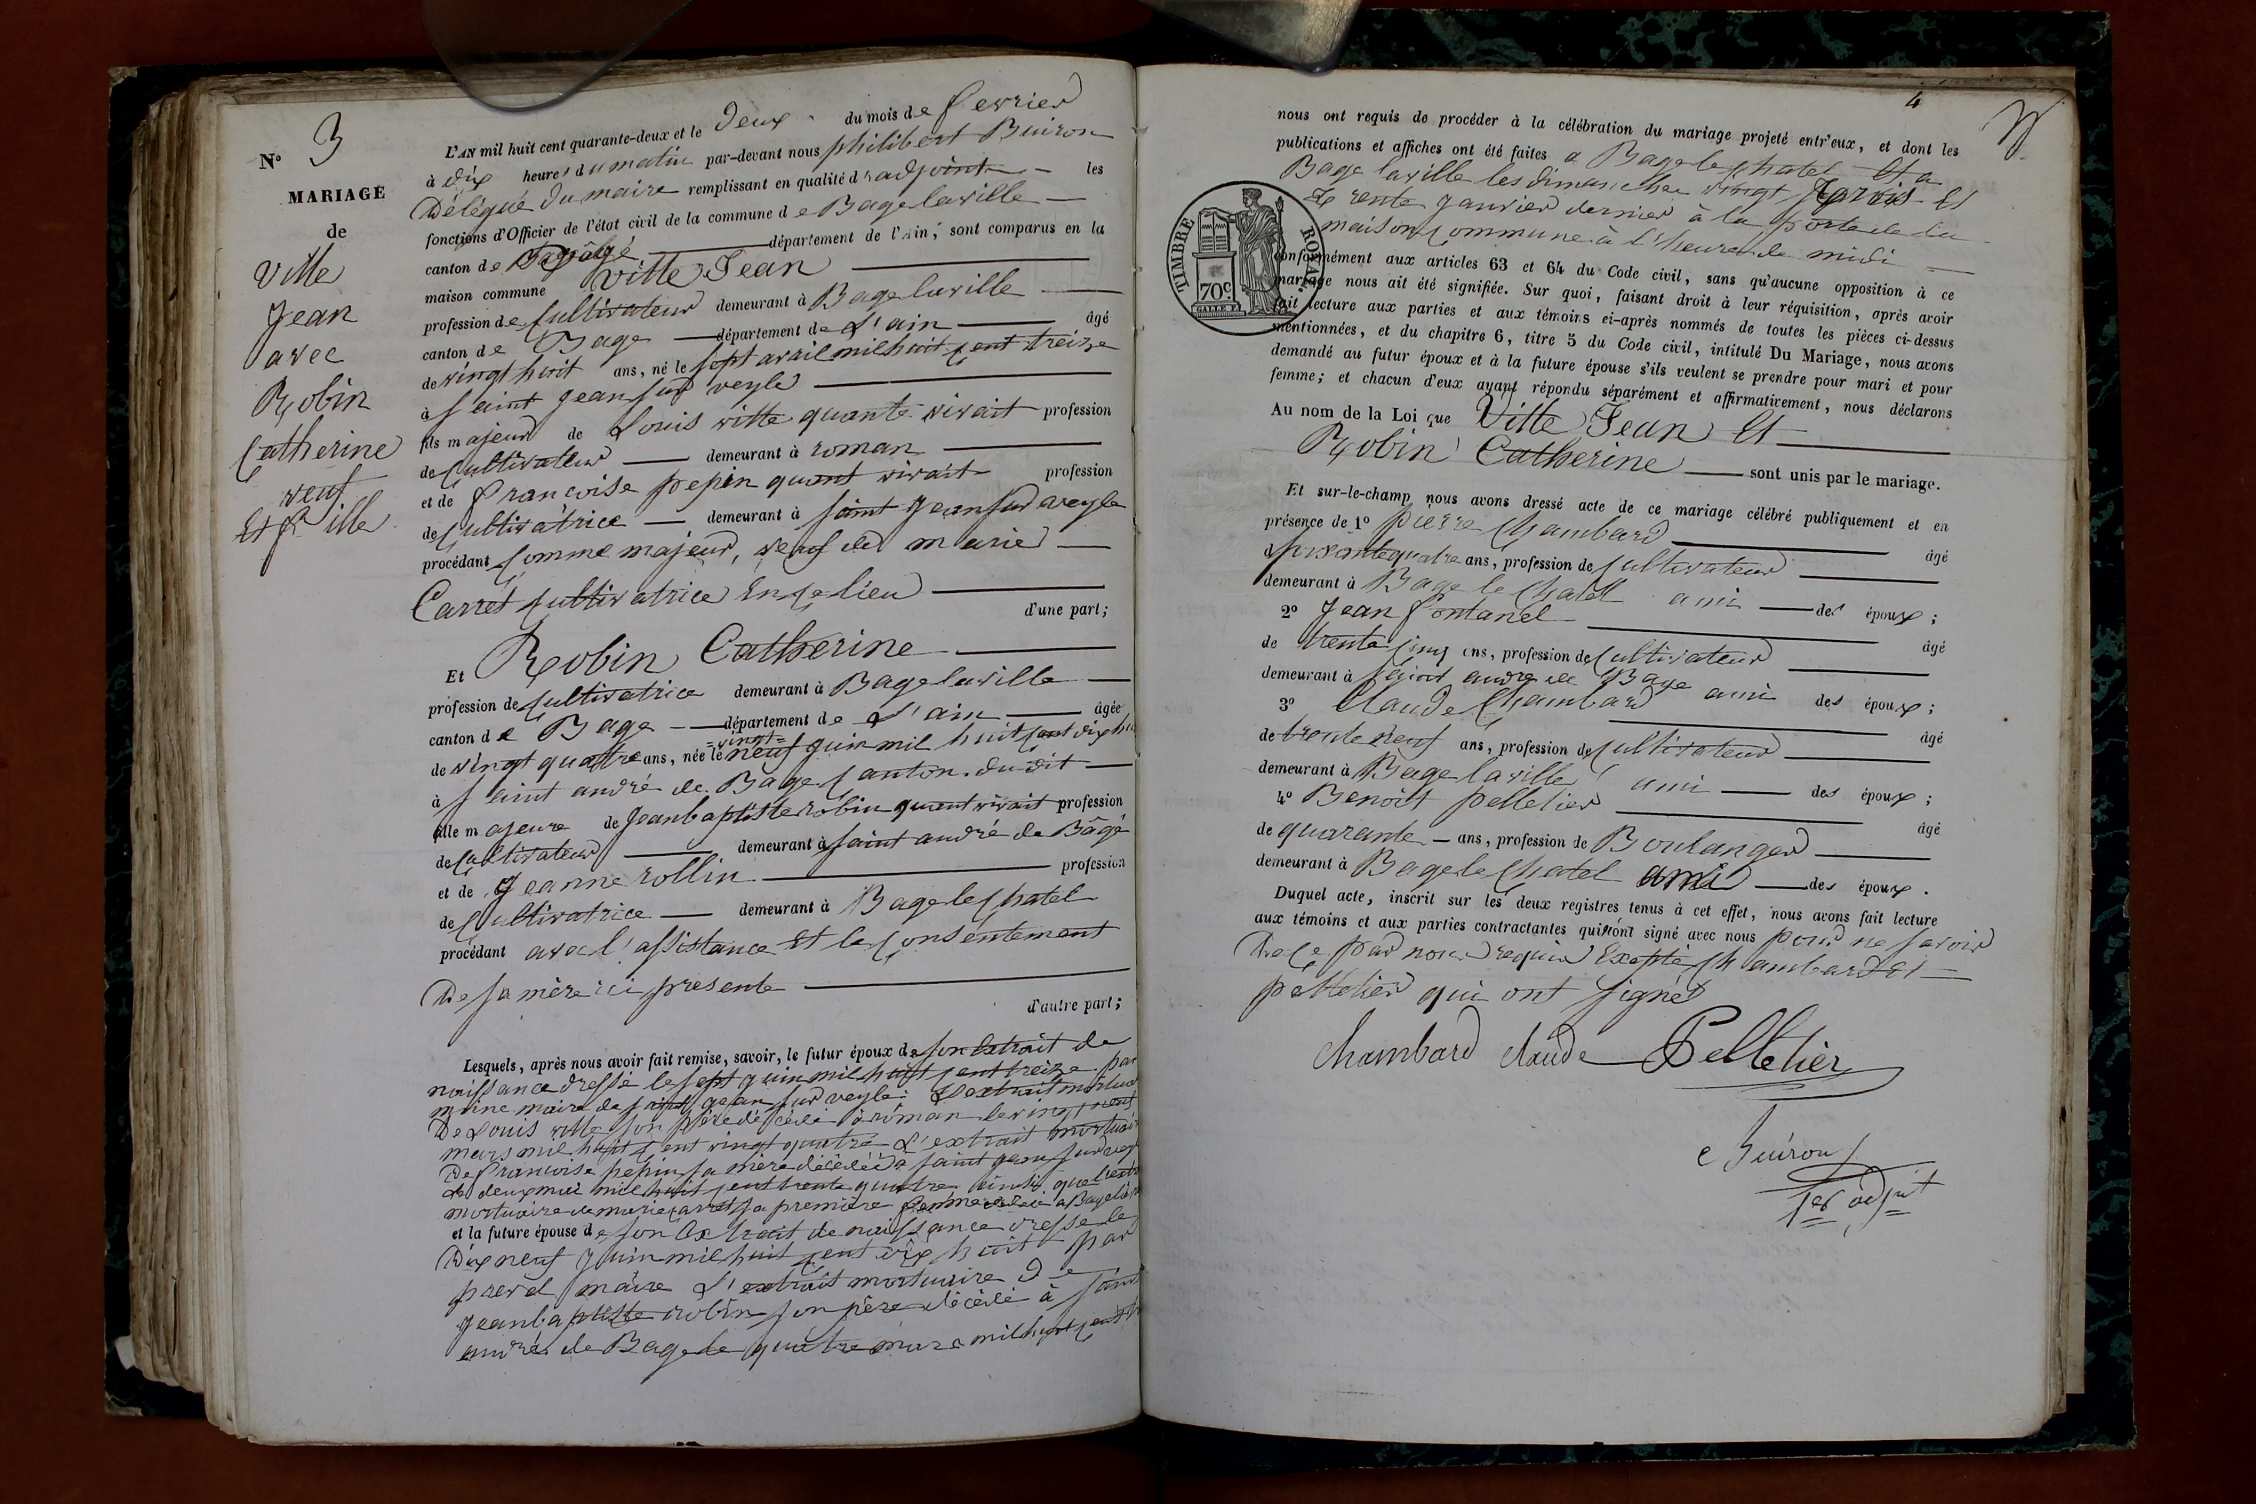 N° 3
MARIAGE
de
Vitte
Jean
avec
Robin
Catherine
veuf
Et fille
L'AN mil huit cent quarante-deux et le Deux du mois de fevrier
à dix heures du matin par-devant nous philibert Buiron
Délégué du maire remplissant en qualité d'adjoint les
fonctions d'Officier de l'état civil de la commune de Bagelaville
canton de Bâgé département de l'Ain, sont comparus en la
maison commune Vitte Jean
profession de Cultivateur demeurant à Bagelaville
canton de Bage département de L'ain âgé
de vingt huit ans, né le sept avril mil huit cent treize
à saint jean sur veyle
fils majeur de Louis vitte quant vivait profession
de Cultivateur demeurant à roman
et de francoise pepin quant vivait profession
de Cultivatrice demeurant à saint jean sur veyle
procédant comme majeur, veuf de marie
Carret cultivatrice En ce lieu
d'une part;
Et Robin Catherine
profession de Cultivatrice demeurant à Bagelaville
canton de Bage département de L'ain âgée
=vingt=
de vingt quatre ans, née le neuf juin mil huit cent dix hu
à saint andré de Bage canton dudit
fille majeure de jeanbaptiste robin quant vivait profession
de Cultivateur demeurant à saint andré de Bâgé
et de jeanne rollin profession
de Cultivatrice demeurant à Bage le Chatel
procédant avec l'assistance Et le Consentement
De sa mère ici presente
d'autre part;
Lesquels, après nous avoir fait remise, savoir, le futur époux de son Extrait de
naissance dressé le sept juin mil huit cent treize par
maire de saint jean sur veyle L'extrait mortuai
De Louis vitte son père décédé à roman le vingt neuf
mars mil huit cent vingt quatre L'extrait mortuai
De francoise pepin sa mère décédée à saint jean sur vey
Le deux mai mil huit cent trente quatre ainsi que l'extr
mortuaire de marie carret sa première femme décédée a Bagela
et la future épouse de son Extrait de naissance dressé le
Dix neuf juin mil huit cent dix huit par
prevel maire L'extrait mortuaire De
jeanbaptiste robin son père décédé à saint
andré de Bage le quatre mars mil huit cent
4
nous ont requis de procéder à la célébration du mariage projeté entr'eux, et dont les
publications et affiches ont été faites a Bage le chatel Et a
Bage laville les dimanches vingt trois Et
trente janvier dernier à la porte de la
maison commune à l'heure de midi
TIMBRE ROYAL
70c
conformément aux articles 63 et 64 du Code civil, sans qu'aucune opposition à ce
mariage nous ait été signifiée. Sur quoi, faisant droit à leur réquisition, après avoir
fait lecture aux parties et aux témoins ci-après nommés de toutes les pièces ci-dessus
mentionnées, et du chapitre 6, titre 5 du Code civil, intitulé Du Mariage, nous avons
demandé au futur époux et à la future épouse s'ils veulent se prendre pour mari et pour
femme; et chacun d'eux ayant répondu séparément et affirmativement, nous déclarons
Au nom de la Loi que Vitte Jean Et
Robin Catherine sont unis par le mariage.
Et sur-le-champ nous avons dressé acte de ce mariage célébré publiquement et en
présence de 1° pierre Chambard âgé
de soixante quatre ans, profession de Cultivateur
demeurant à Bage le Chatel ami des époux;
2° Jean fontanel âgé
de trente cinq ans, profession de Cultivateur
demeurant à saint andré de Bage ami des époux;
3° Claude Chambard âgé
de trente neuf ans, profession de Cultivateur
demeurant à Bage laville ami des époux;
4° Benoit pelletier âgé
de quarante ans, profession de Boulanger
demeurant à Bage le Chatel ami des époux.
Duquel acte, inscrit sur les deux registres tenus à cet effet, nous avons fait lecture
aux témoins et aux parties contractantes qui n'ont signé avec nous pour ne savoir
De ce par nous requis Excepté chambard Et
pelletier qui ont signés
Chambard claude Pelletier
Buiron
1er adjoint